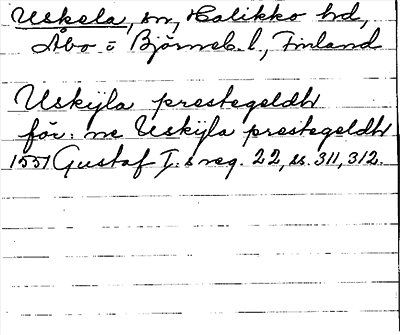 Uskela, sn, Halikko hd,
Åbo o Björneb. l., Finland
Uskÿla prestegeldh
för: ne Uskÿla prestegeldh
1551 Gustaf I:s reg. 22, ss. 311, 312.